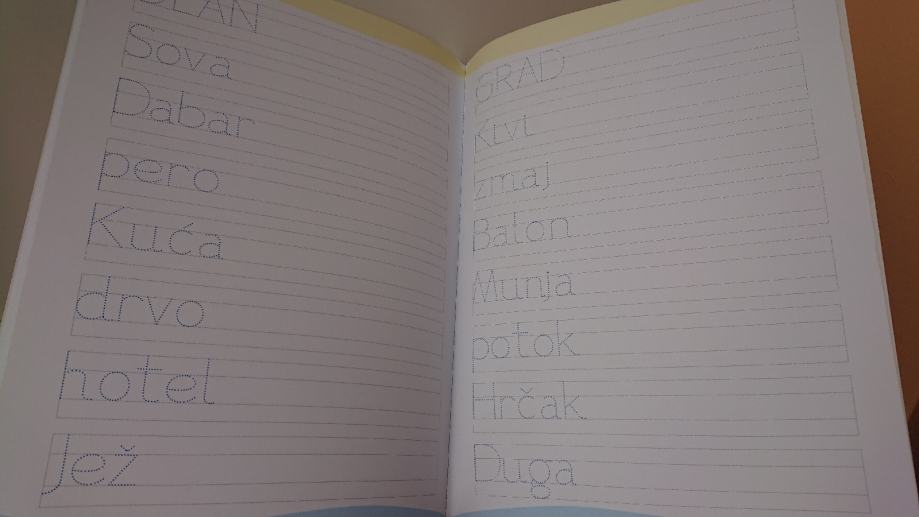 Sova
Dabar
pero
Kuća
drvo
hotel
Jež
GRAD
Kivi
zmaj
Balon
Munja
potok
Hrčak
Duga